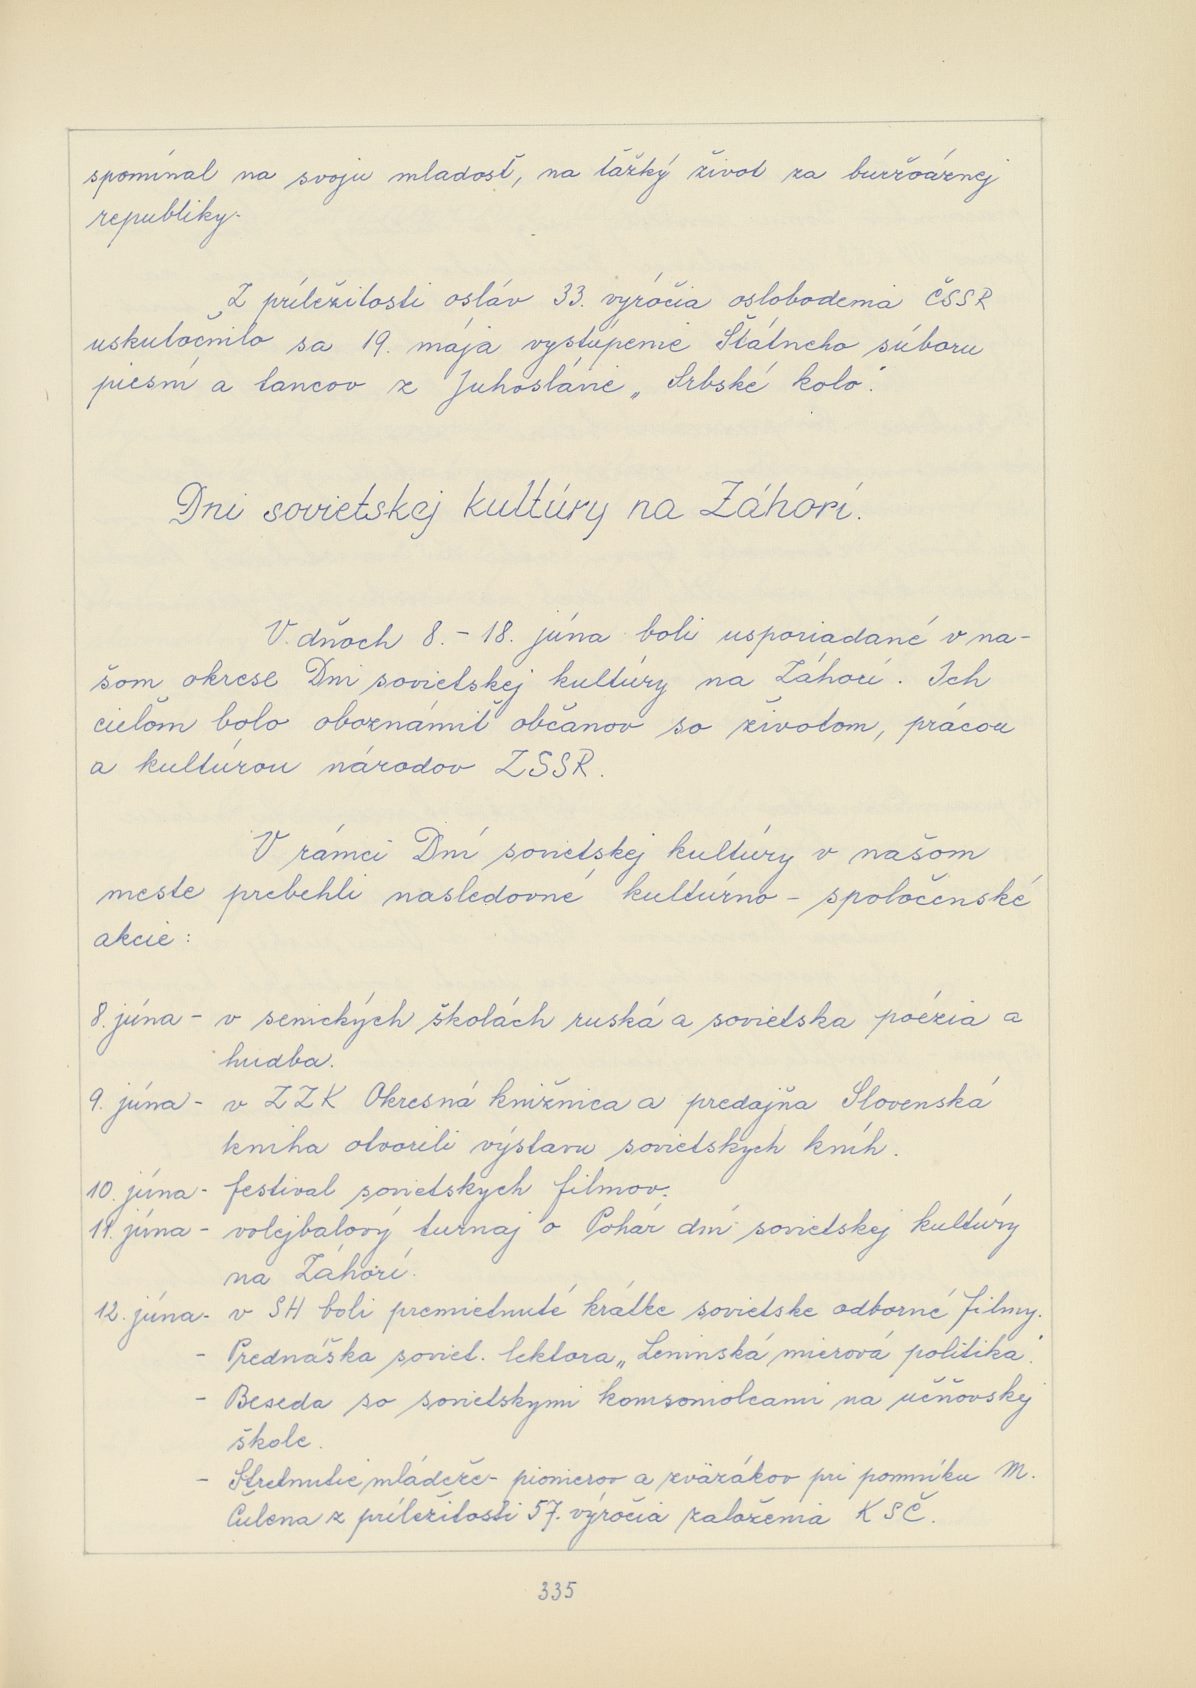 spomínal na svoju mladosť, na ťažký život za buržoáznej
republiky.
Z príležitosti osláv 33. výročia oslobodenia ČSSR
uskutočnilo sa 19. mája vystúpenie Štátneho súboru
piesní a tancov z Juhoslávie „Srbské kolo".
Dni sovietskej kultúry na Záhorí.
V dňoch 8. - 18. júna boli usporiadané v na-
šom okrese Dni sovietskej kultúry na Záhorí. Ich
cieľom bolo oboznámiť občanov so životom, prácou
a kultúrou národov ZSSR.
V rámci Dní sovietskej kultúry v našom
meste prebehli nasledovné kultúrno - spoločenské
akcie:
8. júna - v senických školách ruská a sovietska poézia a
hudba.
9. júna - v ZZK Okresná knižnica a predajňa Slovenská
kniha otvorili výstavu sovietskych kníh.
10. júna - festival sovietskych filmov.
11. júna - volejbalový turnaj o Pohár dní sovietskej kultúry
na Záhorí.
12. júna - v SH boli premietnuté krátke sovietske odborné filmy.
- Prednáška soviet. lektora „Leninská mierová politika".
- Beseda so sovietskymi komsomolcami na učňovskej
škole.
- Stretnutie mládeže - pionierov a zväzákov pri pomníku M.
Čulena z príležitosti 57. výročia založenia KSČ.
335